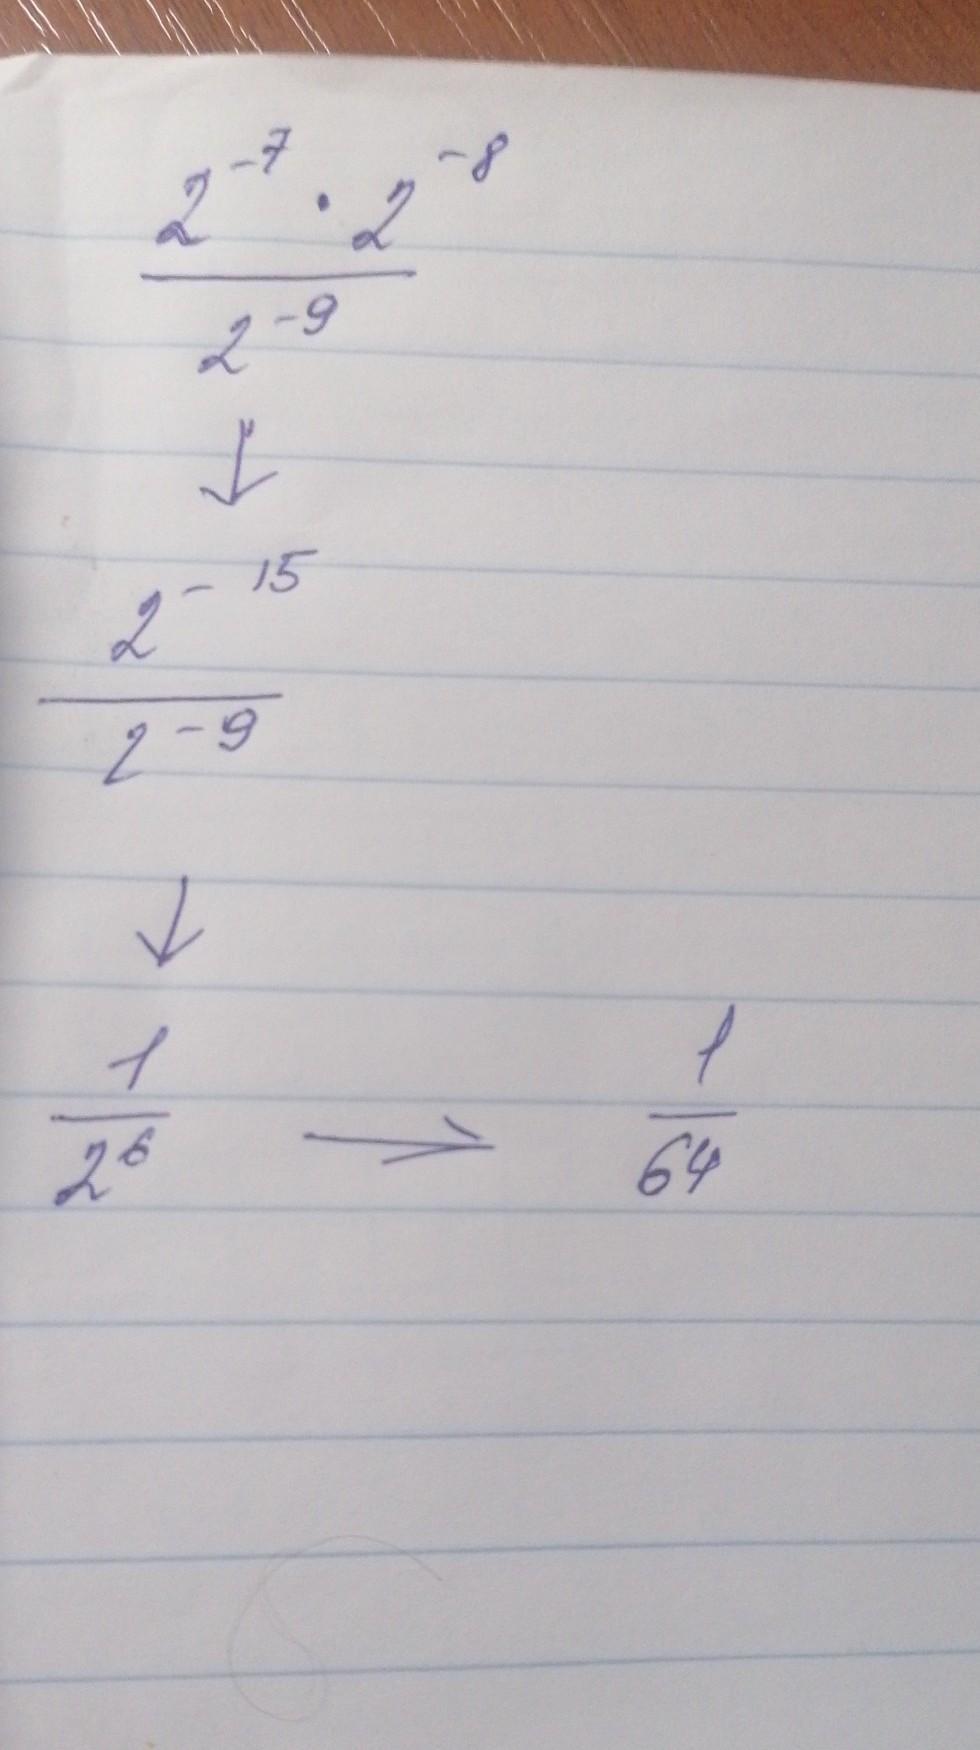 2⁻⁷ · 2⁻⁸
2⁻⁹
↓
2⁻¹⁵
2⁻⁹
↓
1/2⁶ → 1/64